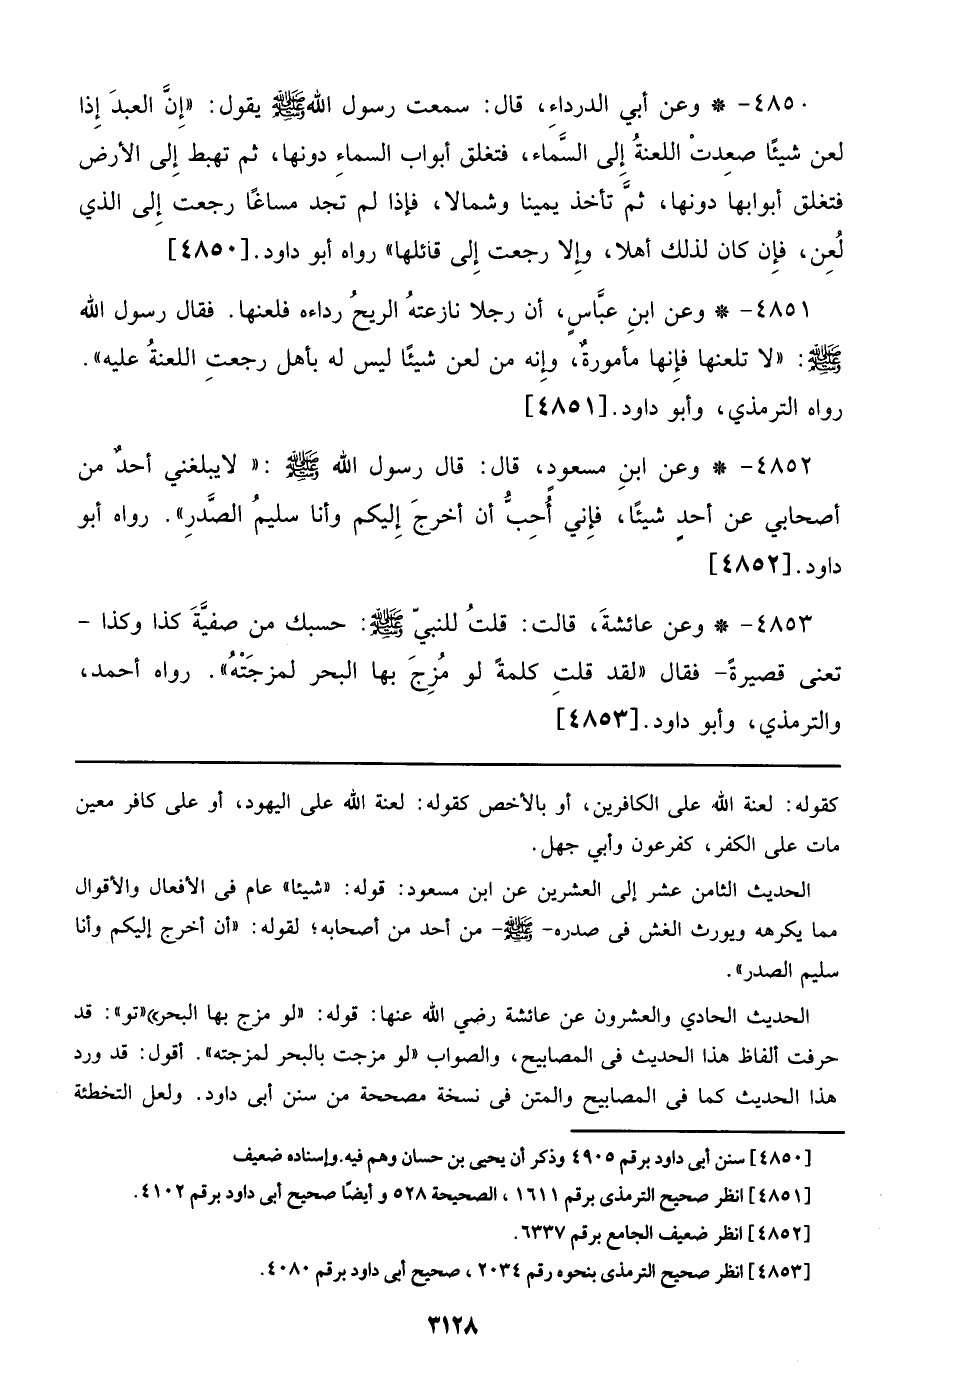 ٤٨٥٠- * وعن أبي الدرداءِ، قال: سمعت رسول اللهﷺ يقول: «إِنَّ العبدَ إِذا
لعن شيئًا صعِدتْ اللعنةُ إِلى السَّماء، فتغلق أبواب السماءِ دونها، ثم تهبط إِلى الأرض
فتغلق أبوابها دونها، ثمَّ تأخذ يمينا وشمالا، فإذا لم تجد مساغًا رجعت إِلى الذي
لُعِن، فإِن كان لذلك أهلا، وإِلا رجعت إِلى قائلها» رواه أبو داود.[٤٨٥٠]
٤٨٥١- * وعن ابنِ عبَّاسٍ، أن رجلا نازعتهُ الريحُ رداءه فلعنها. فقال رسول الله
ﷺ: «لا تلعنها فإِنها مأمورةٌ، وإِنه من لعن شيئًا ليس له بأهل رجعتِ اللعنةُ عليه».
رواه الترمذي، وأبو داود.[٤٨٥١]
٤٨٥٢- * وعن ابنِ مسعودٍ، قال: قال رسول الله ﷺ :« لايبلغني أحدٌ من
أصحابي عن أحدٍ شيئًا، فإِني أُحِبُّ أن أخرجَ إِليكم وأنا سليمُ الصَّدرِ». رواه أبو
داود.[٤٨٥٢]
٤٨٥٣- * وعن عائشةَ، قالت: قلتُ للنبيّ ﷺ: حسبك من صفيَّةَ كذا وكذا -
تعنى قصيرةً- فقال «لقد قلتِ كلمةً لو مُزِجَ بها البحر لمزجَتْهُ». رواه أحمد،
والترمذي، وأبو داود.[٤٨٥٣]
كقوله: لعنة الله على الكافرين، أو بالأخص كقوله: لعنة الله على اليهود، أو على كافر معين
مات على الكفر، كفرعون وأبي جهل.
الحديث الثامن عشر إلى العشرين عن ابن مسعود: قوله: «شيئا» عام فى الأفعال والأقوال
مما يكرهه ويورث الغش فى صدره- ﷺ- من أحد من أصحابه؛ لقوله: «أن أخرج إليكم وأنا
سليم الصدر».
الحديث الحادي والعشرون عن عائشة رضي الله عنها: قوله: «لو مزج بها البحر»«تو»: قد
حرفت ألفاظ هذا الحديث فى المصابيح، والصواب «لو مزجت بالبحر لمزجته». أقول: قد ورد
هذا الحديث كما فى المصابيح والمتن فى نسخة مصححة من سنن أبى داود. ولعل التخطئة
[٤٨٥٠] سنن أبى داود برقم ٤٩٠٥ وذكر أن يحيى بن حسان وهم فيه.وإسناده ضعيف
[٤٨٥١] انظر صحيح الترمذى برقم ١٦١١ ، الصحيحة ٥٢٨ و أيضًا صحيح أبى داود برقم ٤١٠٢.
[٤٨٥٢] انظر ضعيف الجامع برقم ٦٣٣٧.
[٤٨٥٣] انظر صحيح الترمذى بنحوه رقم ٢٠٣٤ ، صحيح أبى داود برقم ٤٠٨٠.
٣١٢٨